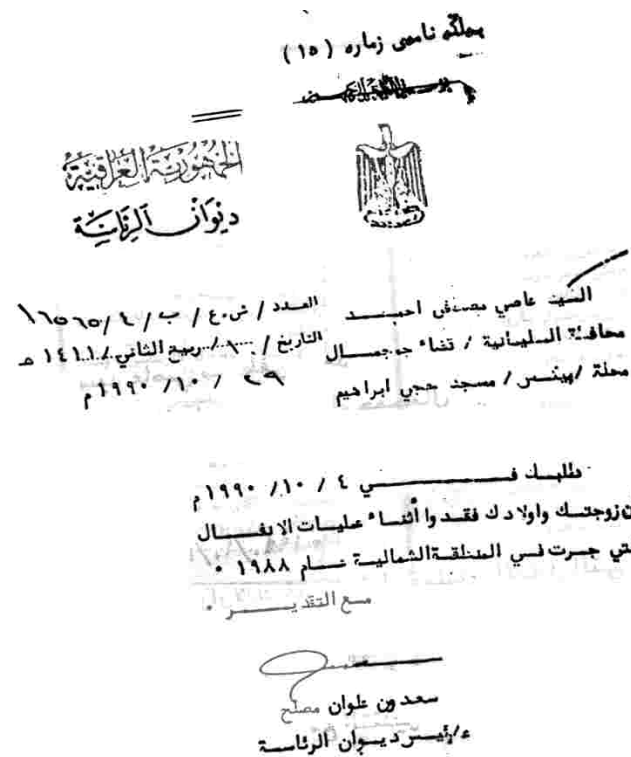 بەڵگەی نامەی ژمارە (١٥)
الجمهورية العراقية
ديوان الرئاسة
السيد عاصي مصطفى احمد
محافظة السليمانية / قضاء جوجمال
محلة / بيبنس / مسجد حجي ابراهيم
العدد / ش.ع / ب / ٤ / ١٦٥٦٥
التاريخ / ١٠ / ربيع الثاني / ١٤١١ هـ
٢٩ / ١٠ / ١٩٩٠ م
طلبك فـــي ٤ / ١٠ / ١٩٩٠ م
ن زوجتك واولادك فقدوا أثناء عمليات الانفال
تي جرت في المنطقة الشمالية عام ١٩٨٨ ٠
مع التقديـــر ٠
سعدون علوان مصلح
ع/رئيس ديوان الرئاسة